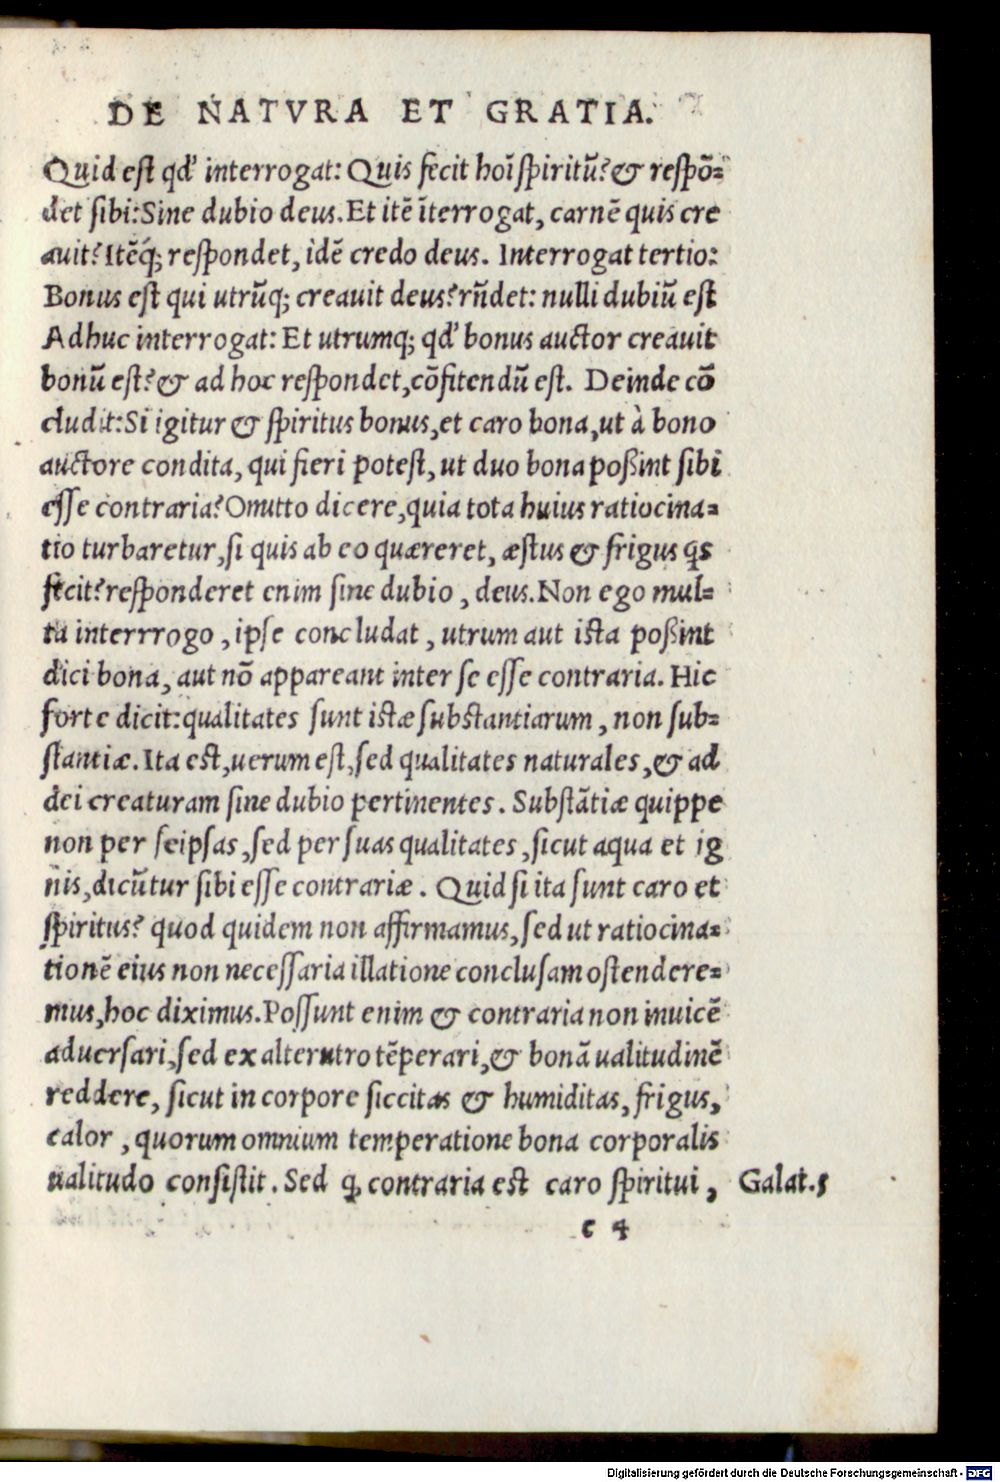 DE NATVRA ET GRATIA.
Quid est qđ interrogat: Quis fecit hoĩ spiritũ? & respõ-
det sibi: Sine dubio deus. Et itẽ ĩterrogat, carnẽ quis cre
auit? Itẽq́; respondet, idẽ credo deus. Interrogat tertio:
Bonus est qui utrũq; creauit deus? rñdet: nulli dubiũ est
Adhuc interrogat: Et utrumq; qđ bonus auctor creauit
bonũ est? & ad hoc respondet, cõfitendũ est. Deinde cõ
cludit: Si igitur & spiritus bonus, et caro bona, ut à bono
auctore condita, qui fieri potest, ut duo bona poßint sibi
esse contraria? Omitto dicere, quia tota huius ratiocina-
tio turbaretur, si quis ab eo quæreret, æstus & frigus q̃s
fecit? responderet enim sine dubio, deus. Non ego mul-
ta interrrogo, ipse concludat, utrum aut ista poßint
dici bona, aut nõ appareant inter se esse contraria. Hic
forte dicit: qualitates sunt istæ substantiarum, non sub-
stantiæ. Ita est, uerum est, sed qualitates naturales, & ad
dei creaturam sine dubio pertinentes. Substãtiæ quippe
non per seipsas, sed per suas qualitates, sicut aqua et ig
nis, dicũtur sibi esse contrariæ. Quid si ita sunt caro et
spiritus? quod quidem non affirmamus, sed ut ratiocina-
tionẽ eius non necessaria illatione conclusam ostendere-
mus, hoc diximus. Possunt enim & contraria non inuicẽ
aduersari, sed ex alterutro tẽperari, & bonã ualitudinẽ
reddere, sicut in corpore siccitas & humiditas, frigus,
calor, quorum omnium temperatione bona corporalis
ualitudo consistit. Sed q̃ contraria est caro spiritui, Galat. 5
c 4
Digitalisierung gefördert durch die Deutsche Forschungsgemeinschaft - DFG